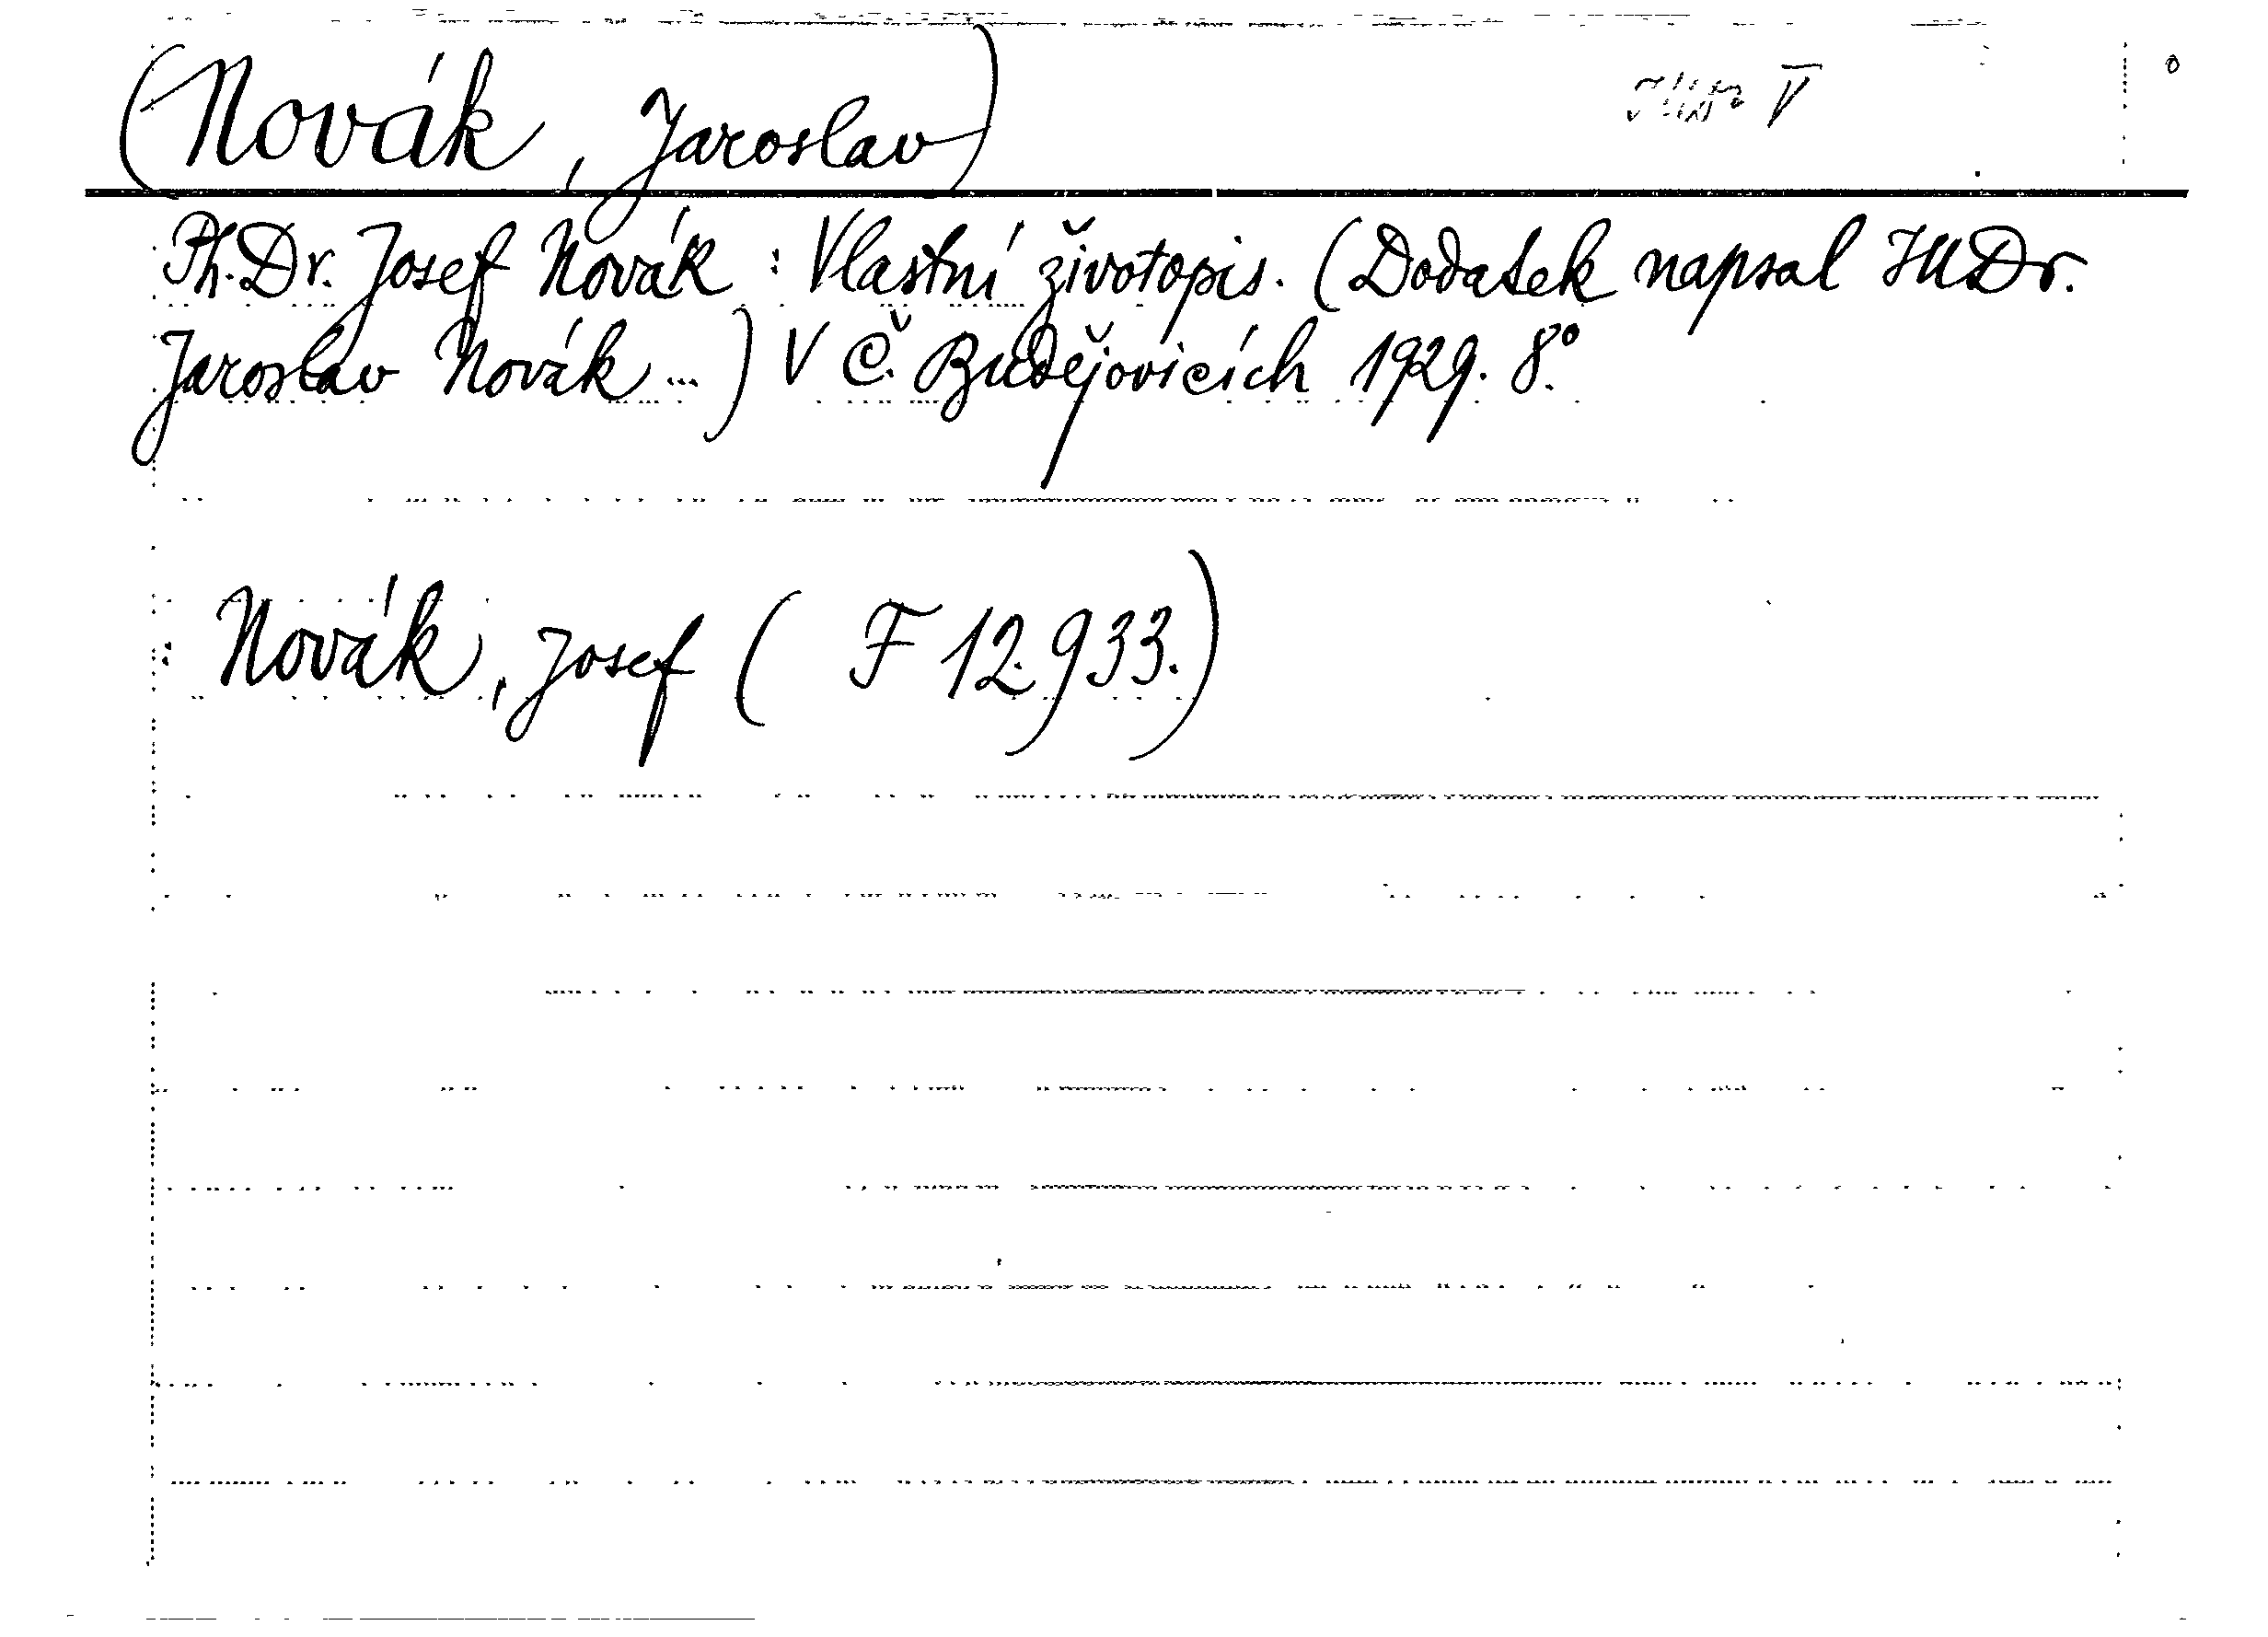 (Novák, Jaroslav)
V
Ph.Dr. Josef Novák: Vlastní životopis. (Dodatek napsal JUDr.
Jaroslav Novák...) V Č. Budějovicích 1929. 8°.
Novák, Josef (F 12.933.)